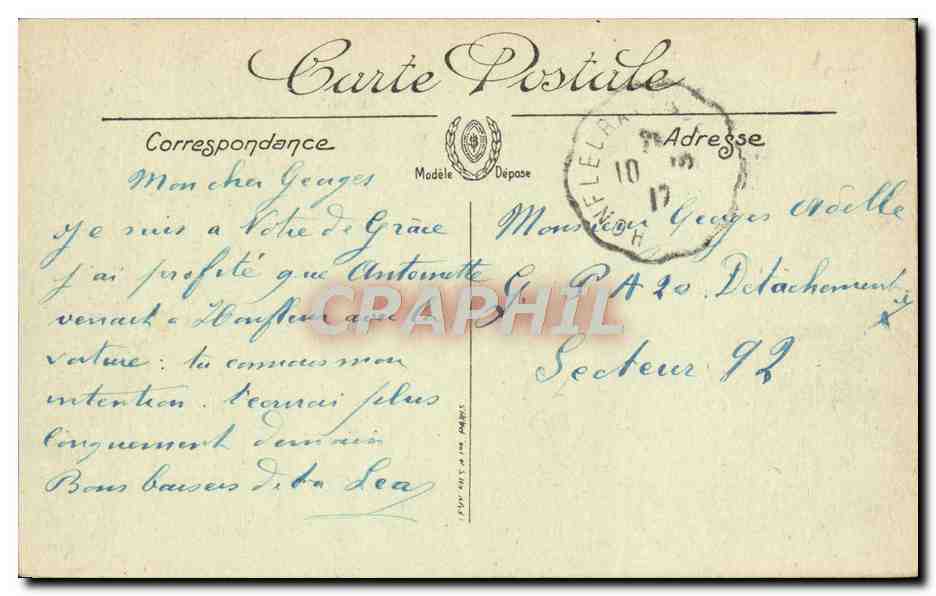 Carte Postale
Correspondance
Modèle Déposé
Adresse
HONFLEUR
10
17
Mon cher Georges
Je suis a Notre de Grâce
j'ai profité que Antoinette
venait a Honfleur avec la
voiture : tu connais mon
intention. t'ecrirai plus
longuement demain
Bons baisers de ta Lea
Monsieur Georges
G P A 20. Détachement
Secteur 92
LEVY FILS & Cie PARIS
CPAPHIL